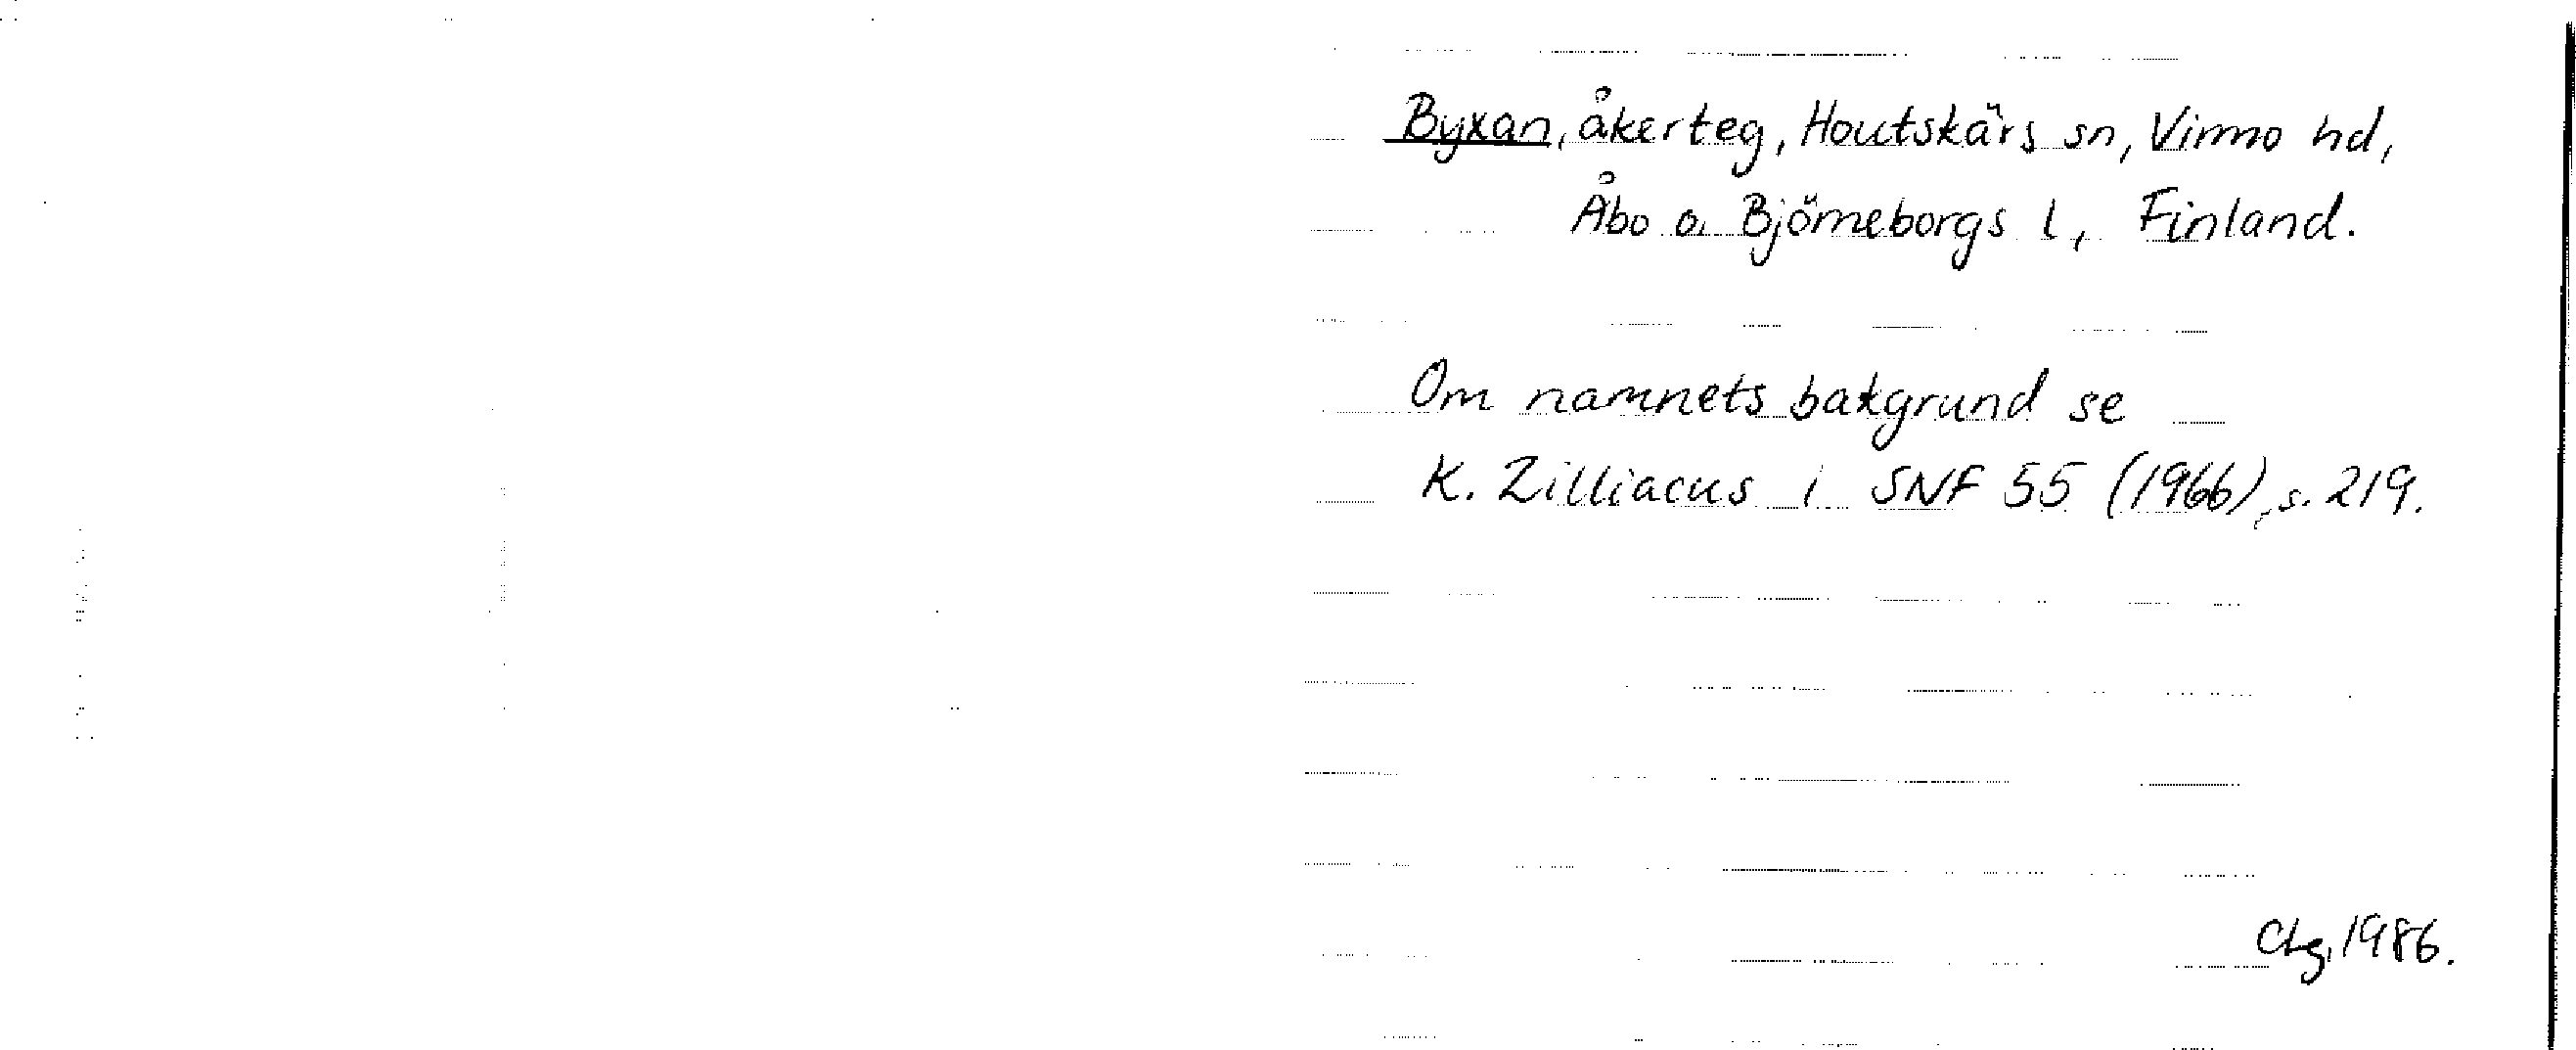 Byxan, åkerteg, Houtskärs sn, Virmo hd,
Åbo o. Björneborgs l, Finland.
Om namnets bakgrund se
K. Zilliacus i SNF 55 (1966), s. 219.
1986.